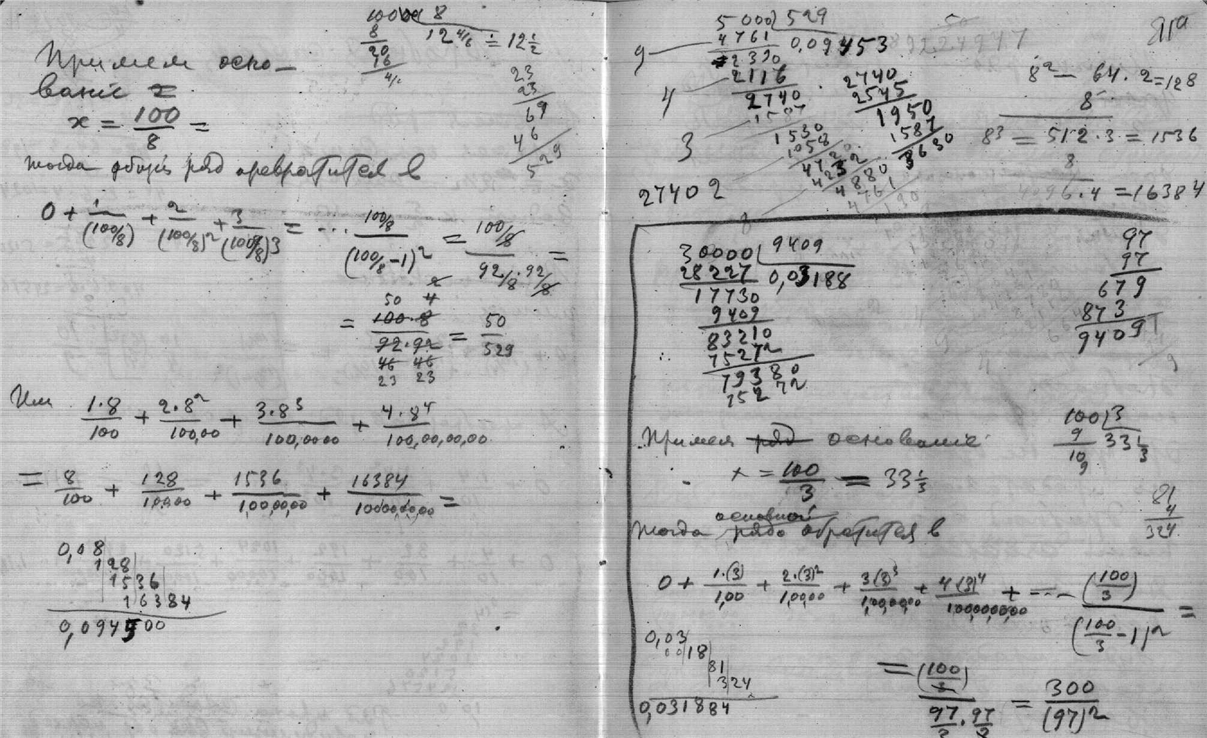 Примем осно-
вание
x = 100/8 =
10000 8
8
20 12 4/8 = 12 1/2
16
4/8
23
23
69
46
529
тогда общий ряд превратится в
0 + 1/(100/8) + 2/(100/8)² + 3/(100/8)³ = ... 100/8 / (100/8 - 1)² = 100/8 / 92/8 · 92/8 =
= 100·8 / 92·92 = 50/529
50 4
46 46
23 23
Или
1·8/100 + 2·8²/100,00 + 3·8³/100,0000 + 4·8⁴/100,00,00,00
= 8/100 + 128/10000 + 1536/1000000 + 16384/100000000 =
0,08
128
1536
16384
0,094500
91а
5000 529
9 4761 0,09453
2390
4 2116
2740
3 1587
1530
1058
4720
4232
4880
4761
190
27402
2740
2545
1950
1587
3630
8² = 64·2 = 128
8
8³ = 512·3 = 1536
8
4096·4 = 16384
30000 9409
28227 0,03188
17730
9409
83210
75272
79380
75272
97
97
679
873
9409
Примем ряд основание
x = 100/3 = 33 1/3
100 3
9 33 1/3
10
9
тогда основной ряд обратится в
81
4
324
0 + 1·(3)/1,00 + 2·(3)²/1,00,00 + 3(3)³/1,00,00,00 + 4·(3)⁴/100000000 + ... (100/3) / (100/3 - 1)² =
0,03
0018
81
324
0,031884
= (100/3) / 97/3 · 97/3 = 300/(97)²